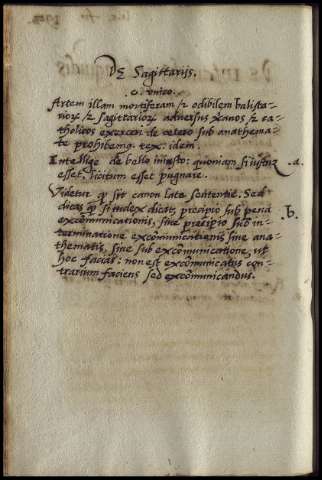 DE Sagittariis.
c. unico.
Artem illam mortiferam & odibilem balista-
rioꝝ & sagittarioꝝ adversus xp̄anos & ca-
tholicos exerceri de cetero sub anathema-
te prohibemꝰ. tex: idem.
Intellige de bello iniusto: quoniam si iustū a.
esset, licitum esset pugnare.
Videtur ꝙ sit canon late sententie. Sed
dicas ꝙ si iudex dicat, precipio sub pena b.
excōmunicationis, sive precipio sub in-
terminatione excōmunicationis sive ana-
thematis, sive sub excōmunicatione, ut
hoc facias: non est excōmunicatus con-
trarium faciens sed excōmunicandus.